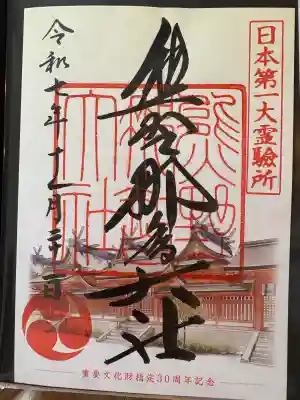 日本第一大霊驗所
熊野那智大社
熊野那智大社
令和七年
重要文化財指定30周年記念